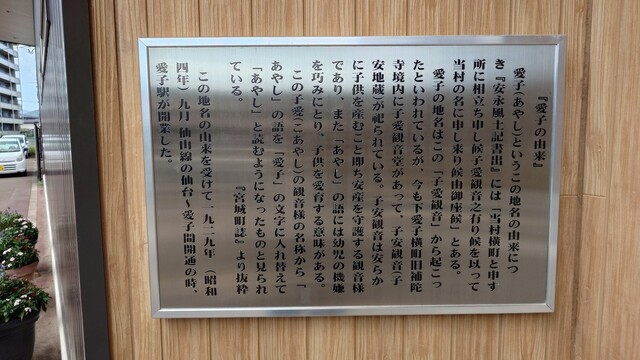 『愛子の由来』
愛子(あやし)というこの地名の由来につ
き『安永風土記書出』には「当村横町と申す
所に相立ち申し候子愛観音之有り候を以って
当村の名に申し来り候由御座候」とある。
愛子の地名はこの「子愛観音」から起こっ
たといわれているが、今も下愛子横町旧補陀
寺境内に子愛観音堂があって、子安観音(子
安地蔵)が祀られている。子安観音は安らか
に子供を産むこと即ち安産を守護する観音様
であり、また「あやし」の語には幼児の機嫌
を巧みにとり、子供を愛育する意味がある。
この子愛(こあやし)の観音様の名称から「
あやし」の語を「愛子」の文字に入れ替えて
「あやし」と読むようになったものと見られ
ている。
『宮城町誌』より抜粋
この地名の由来を受けて一九二九年(昭和
四年)九月 仙山線の仙台〜愛子間開通の時、
愛子駅が開業した。